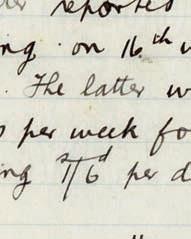 reported
ng. on 16th
. The latter w
s per week fo
ing 2/6d per d